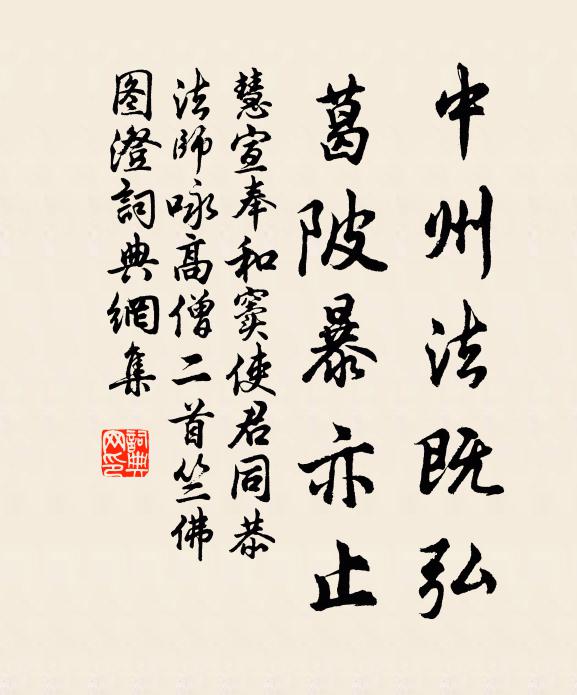 中州法既弘
葛陂暴亦止
慧宣奉和窦使君同恭
法师咏高僧二首竺佛
图澄詞典網集
詞典
网印